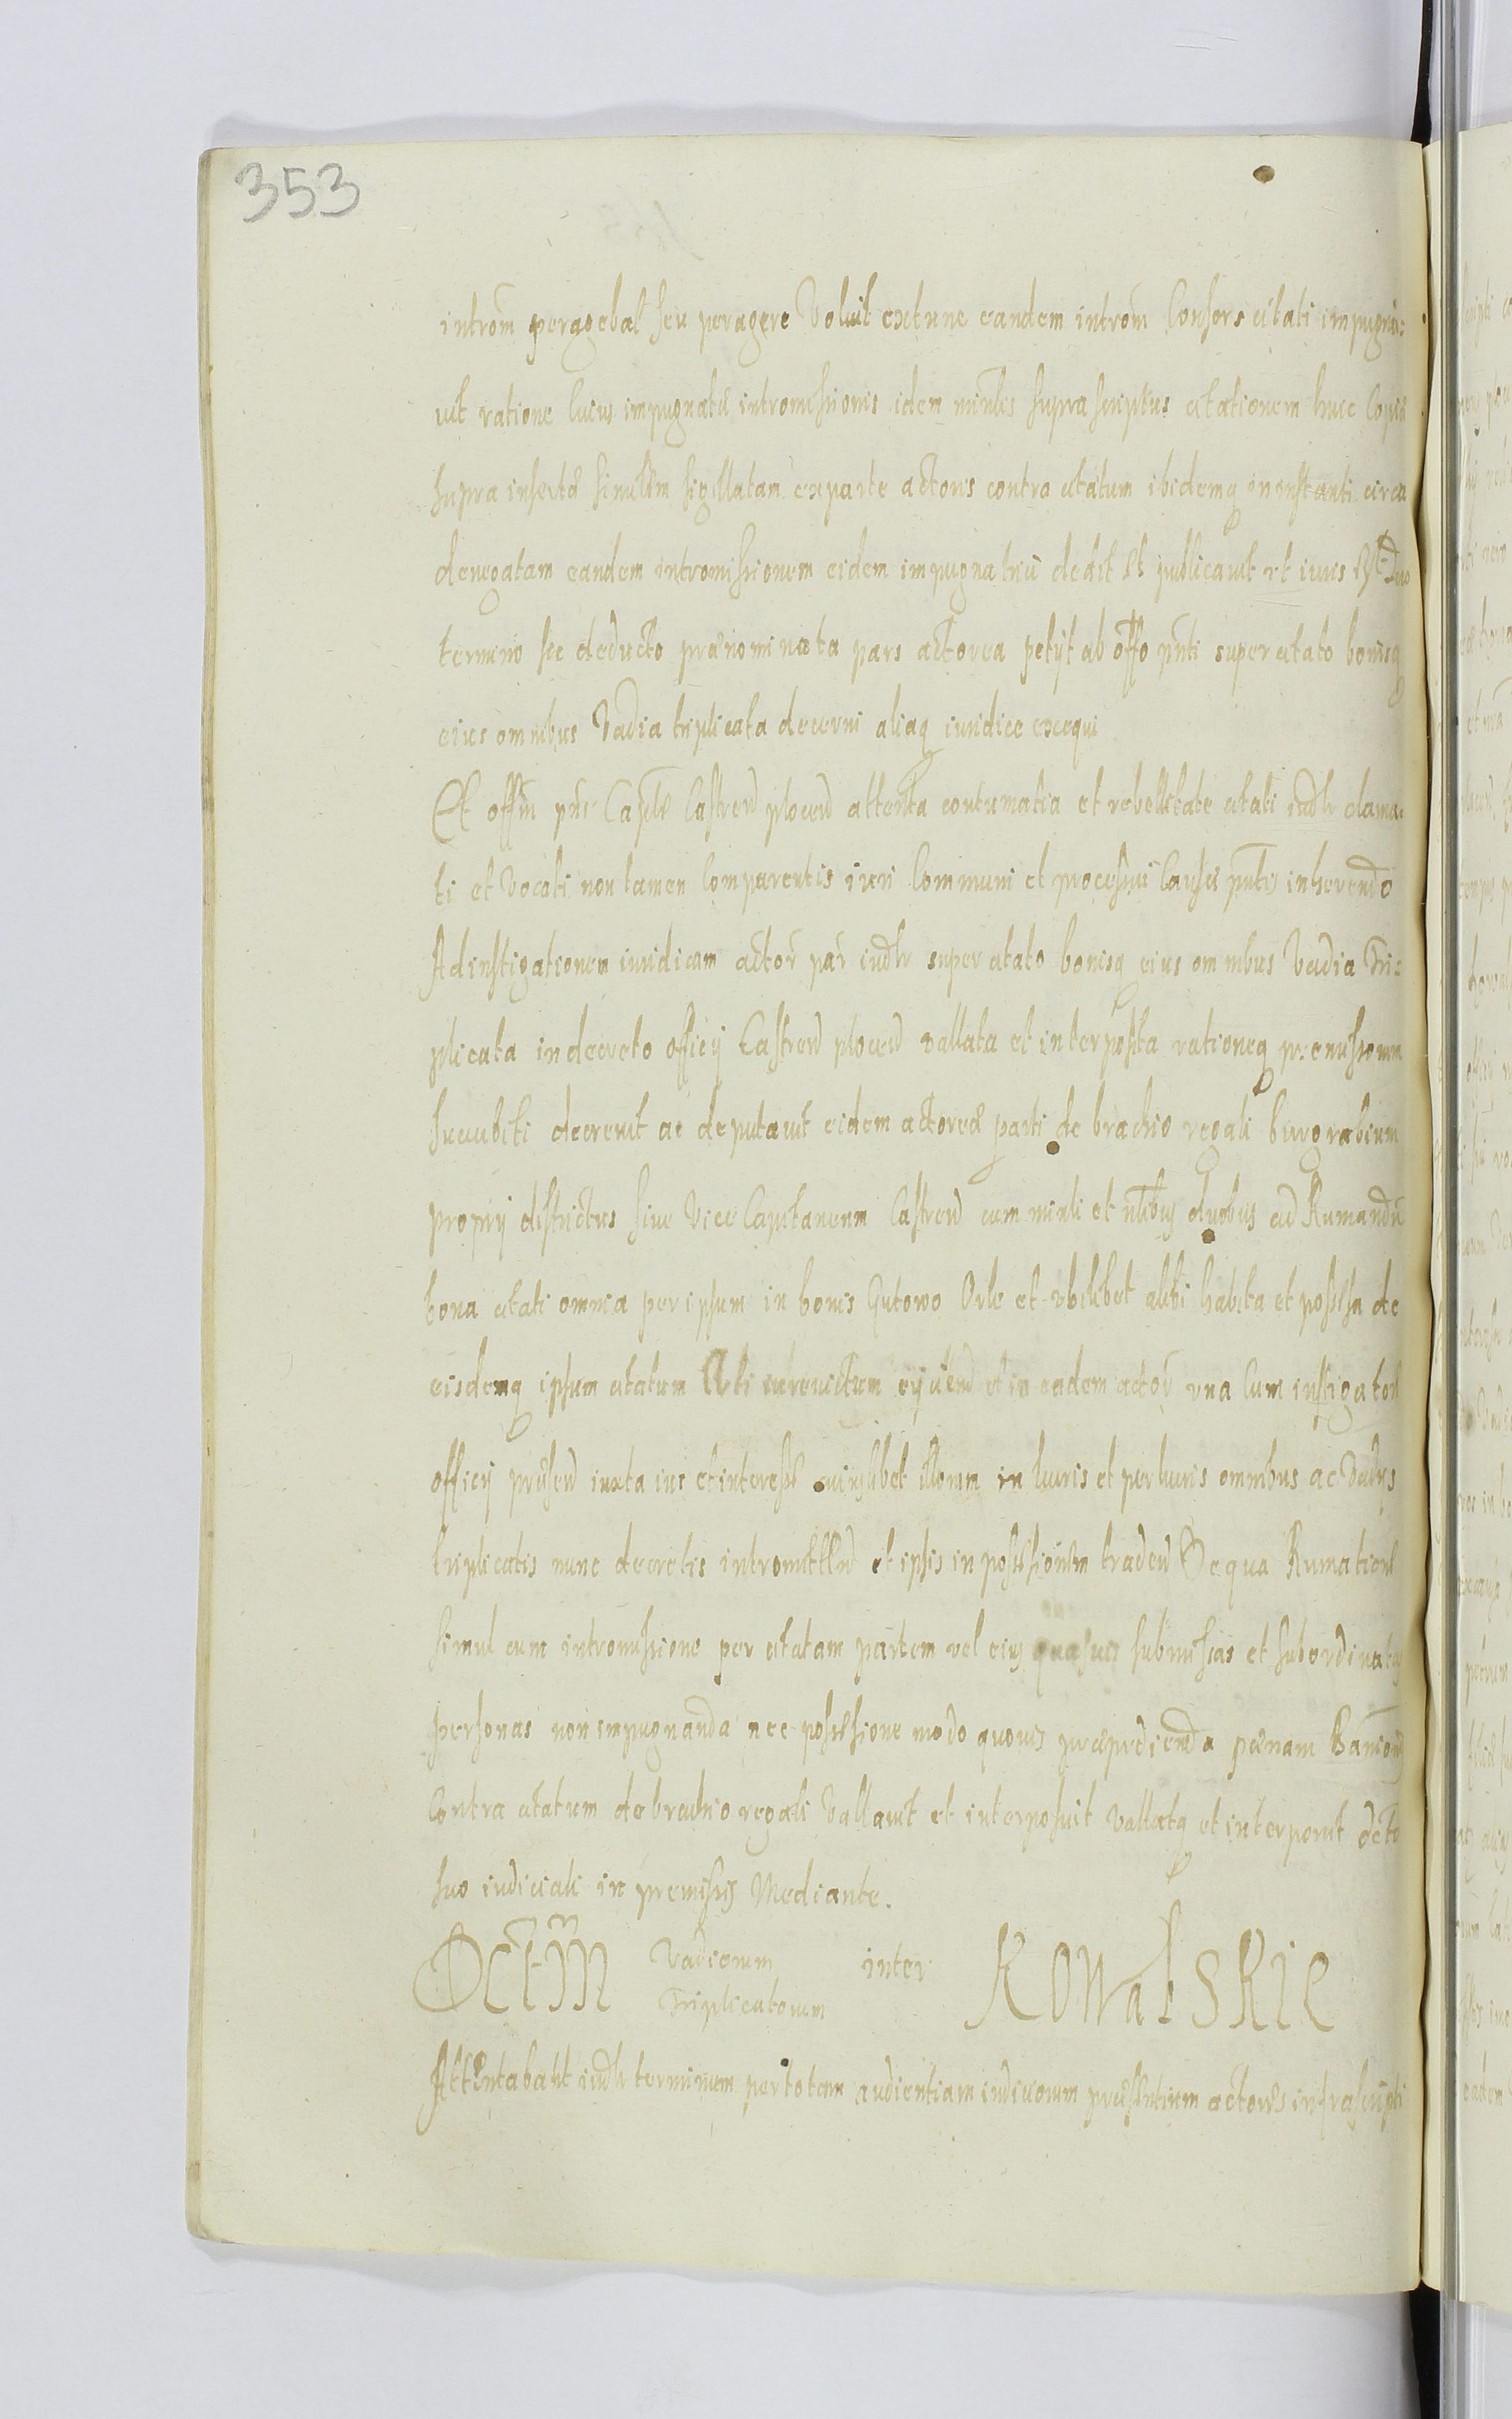 353
introm̃ peragebat seu peragere Voluit extunc eandem introm̃ Consors citati impugna:
uit ratione cuius impugnatæ intromissionis idem minlis suprascriptus citationem huic Copiæ
supra insertæ similem sigillatam ex parte actoris contra citatum ibidemq in instanti circa
denegatam eandem intromissionem eidem impugnatrici dedit et publicauit et iuris
termino sic deducto prænominata pars actorea petijt ab offo pnti super citato bonisq
eius omnibus Vadia triplicata decerni aliaq iuridice exequi
Et offm pns Captle Castren plocen attenta contumatia et rebellitate citati iudlr clama:
ti et Vocati non tamen Comparentis iuri Communi et processui Causæ pntis inherendo
Ad instigationem iuridicam actor par iudlr super citato bonisq eius omnibus Vadia Tri:
plicata in decreto officij Castren plocen vallata et interposita rationeq premissorum
succubiti decreuit ac deputauit eidem actoreæ parti de brachio regali burgrabium
proprij districtus siue Vice Capitaneum Castren cum minli et nlibus duobus ad Rumandũ
bona citati omnia per ipsum in bonis Gutowo Orle et vbilibet alibi habita et possessa de
eisdemq ipsum citatum Vti iureuictum eijciend et in eadem actor vna Cum instigatore
officij prnsen iuxta ius et interesse cuiuslibet illorum in lucris et perlucris omnibus ac Vadijs
triplicatis nunc decretis intromitten et ipsis in possessionem traden De qua Rumatione
simul cum intromissione per citatam partem vel eius quasuis submissas et subordinatas
personas non impugnanda nec possessione modo quouis præpedienda pænam Banniõnis
Contra citatum de brachio regali Vallauit et interposuit Vallatq et interponit dcto
suo iudiciali in premissis Mediante.
Dctm Vadiorum Triplicatorum inter Kowalskie
Attentabant iudlr terminum per totam audientiam iudiciorum præsentium actores infrascripti